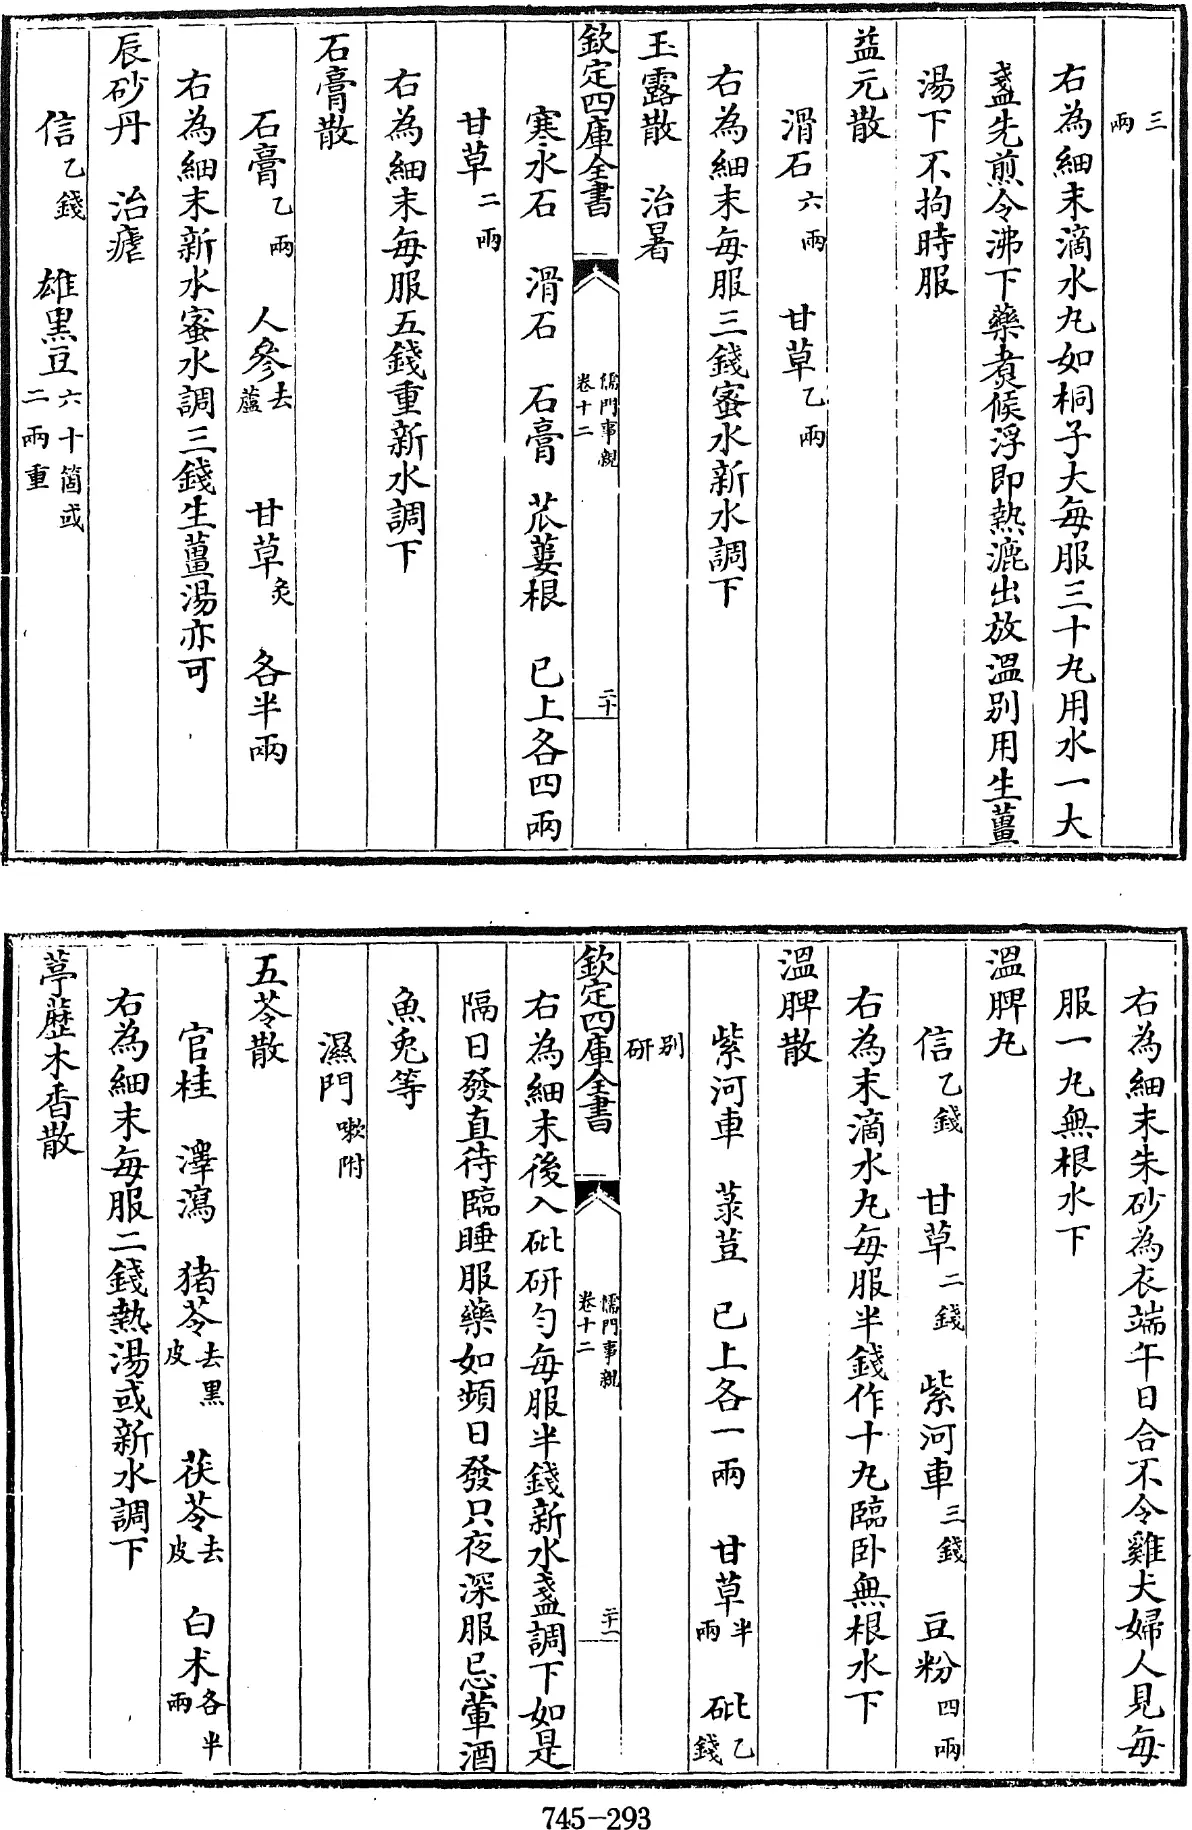 三兩
右為細末滴水丸如桐子大每服三十丸用水一大
盞先煎令沸下藥煮候浮即熱漉出放温别用生薑
湯下不拘時服
益元散
滑石六兩 甘草乙兩
右為細末每服三錢蜜水新水調下
玉露散 治暑
欽定四庫全書 儒門事親卷十二 二十
寒水石 滑石 石膏 苽蔞根 已上各四兩
甘草二兩
右為細末每服五錢重新水調下
石膏散
石膏乙兩 人參去蘆 甘草炙 各半兩
右為細末新水蜜水調三錢生薑湯亦可
辰砂丹 治瘧
信乙錢 雄黒豆六十箇或二兩重
右為細末朱砂為衣端午日合不令雞犬婦人見每
服一丸無根水下
溫脾丸
信乙錢 甘草二錢 紫河車三錢 豆粉四兩
右為末滴水丸每服半錢作十丸臨卧無根水下
溫脾散
紫河車 菉荳 已上各一兩 甘草半兩 砒乙錢
别研
欽定四庫全書 儒門事親卷十二 二十一
右為細末後入砒研勻每服半錢新水盞調下如是
隔日發直待臨睡服藥如頻日發只夜深服忌葷酒
魚兔等
濕門嗽附
五苓散
官桂 澤瀉 猪苓去黒皮 茯苓去皮 白术各半兩
右為細末每服二錢熱湯或新水調下
葶藶木香散
745-293